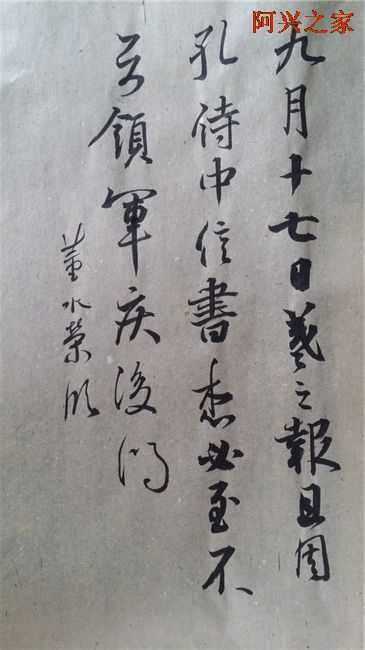 阿兴之家
九月十七日羲之報且因
孔侍中信書想必至不
知領軍疾後問
董水榮臨